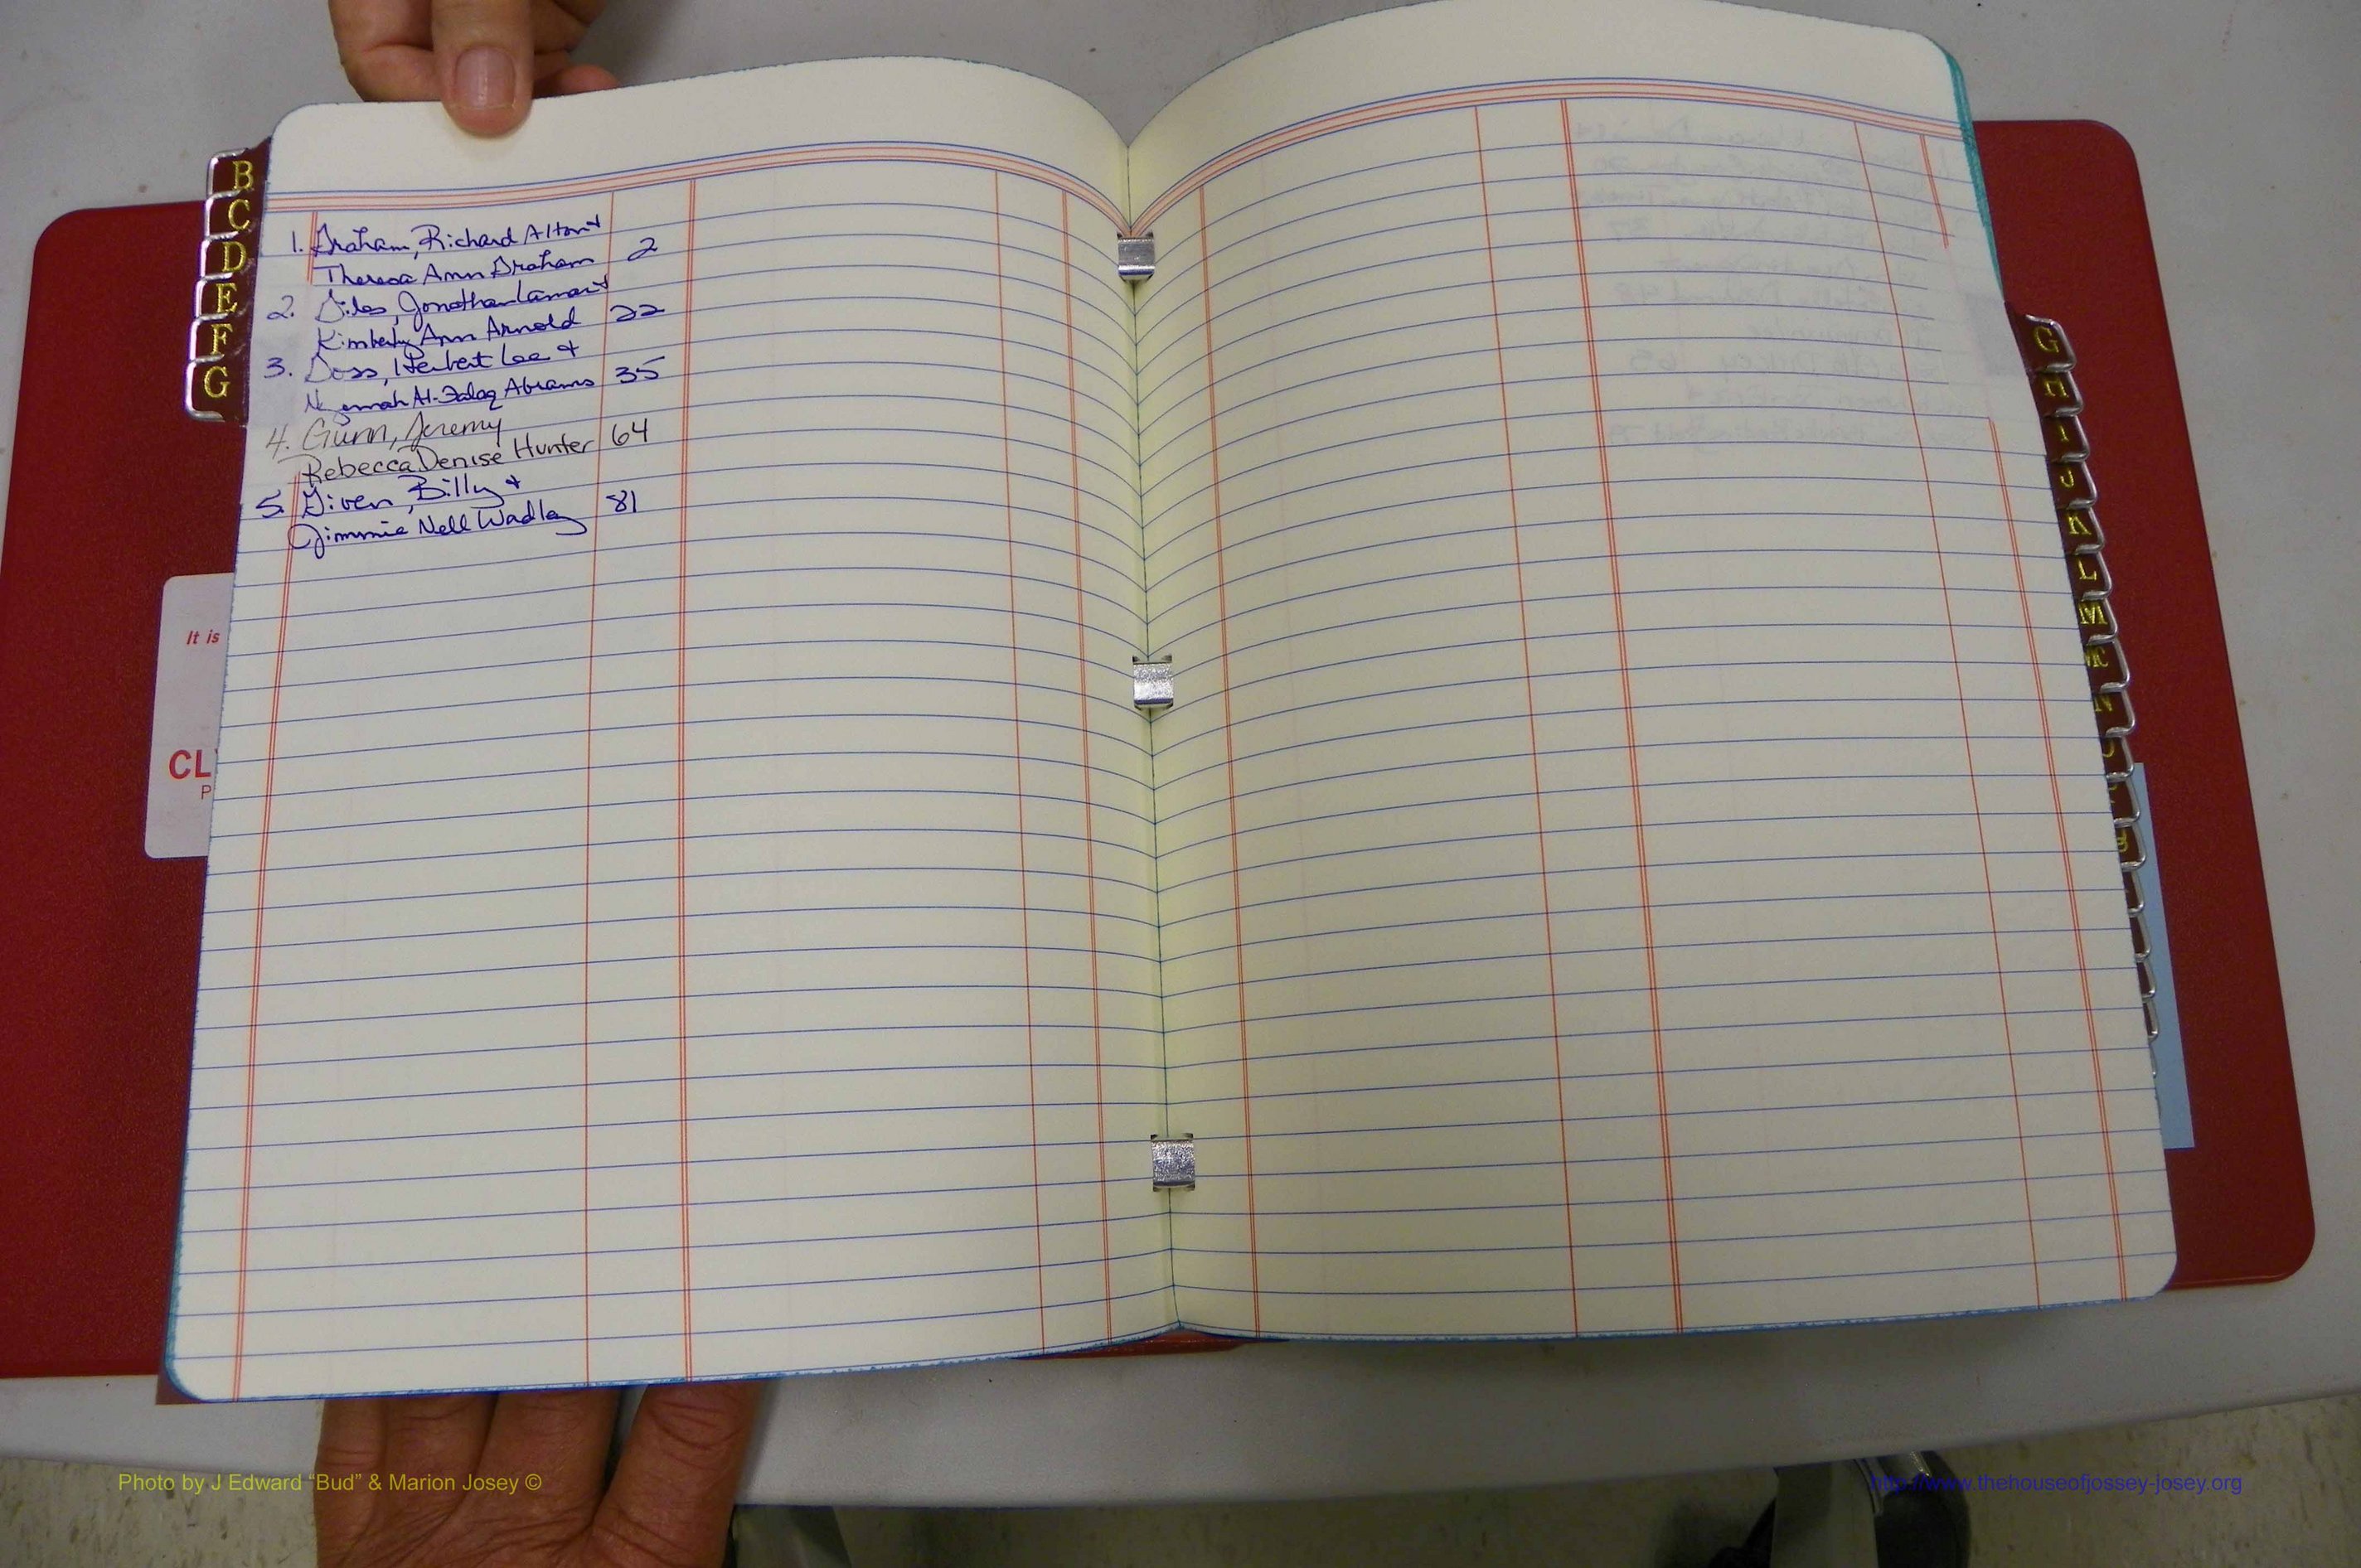 B
C
D
E
F
G
1. Graham, Richard Alton &
Theresa Ann Graham 2
2. Giles, Jonathan Lamar &
Kimberly Ann Arnold 22
3. Goss, Herbert Lee &
Al-Falaq Abrams 35
4. Gunn, Jeremy
Rebecca Denise Hunter 64
5. Given, Billy &
Jimmie Nell Wadley 81
It is
CL
P
G
H
I
J
K
L
M
Mc
N
O
Photo by J Edward “Bud” & Marion Josey ©
http://www.thehouseofjossey-josey.org